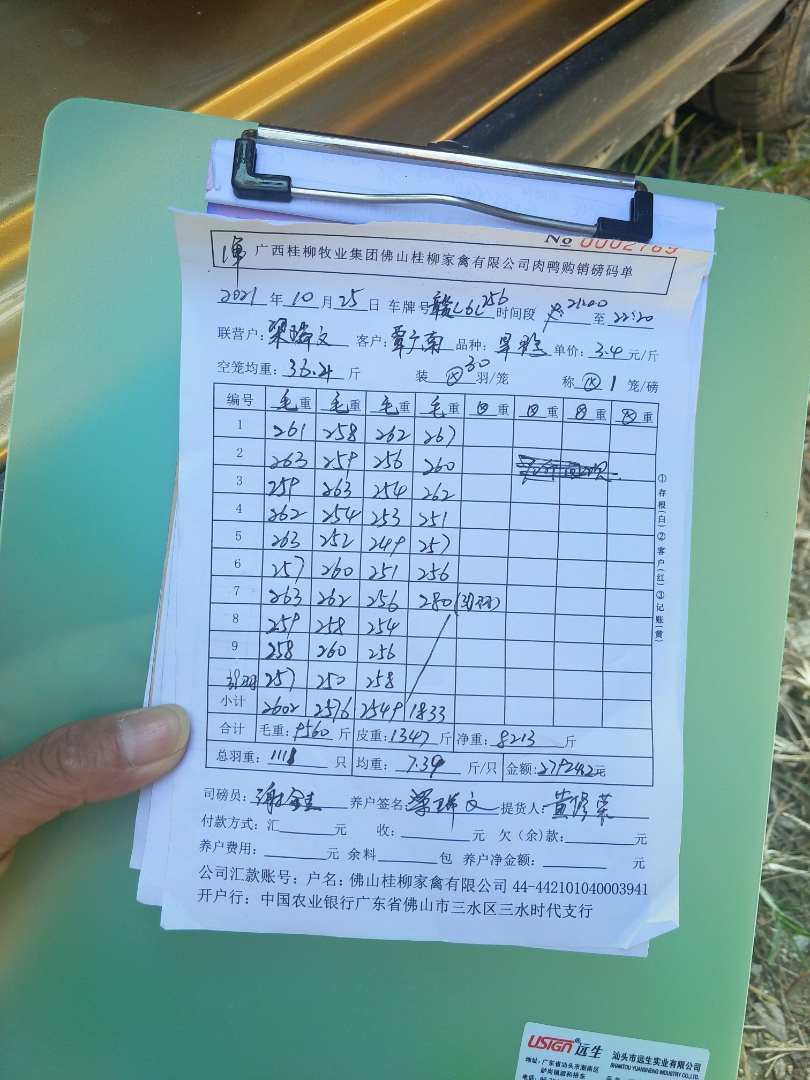 No 0002769
广西桂柳牧业集团佛山桂柳家禽有限公司肉鸭购销磅码单
2021 年 10 月 25 日 车牌号 赣L6L256 时间段 21:00 至 22:20
联营户: 梁瑞文 客户: 覃广南 品种: 单价: 3.4 元/斤
空笼均重: 36.4 斤 装 30 羽/笼 称 1 笼/磅
编号 毛重 毛重 毛重 毛重 重 重 重 重
1 261 258 262 267
2 263 259 256 260
3 259 263 254 262
4 262 254 253 251
5 263 252 249 257
6 257 260 251 256
7 263 262 256 280
8 259 258 254
9 258 260 256
257 250 258
小计 2602 2576 2549 1833
合计 毛重: 9560 斤 皮重: 1347 斤 净重: 8213 斤
总羽重: 1111 只 均重: 7.39 斤/只 金额: 27924.2 元
司磅员: 养户签名: 梁瑞文 提货人:
付款方式: 汇 元 收: 元 欠(余)款: 元
养户费用: 元 余料 包 养户净金额: 元
公司汇款账号: 户名: 佛山桂柳家禽有限公司 44-442101040003941
开户行: 中国农业银行广东省佛山市三水区三水时代支行
①存根(白)②客户(红)③记账(黄)
USIGN 远生 汕头市远生实业有限公司
SHANTOU YUANSHENG INDUSTRY CO.,LTD
地址:广东省汕头市潮南区